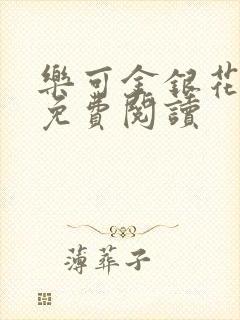 樂可金銀花
免費閱讀
薄葬子